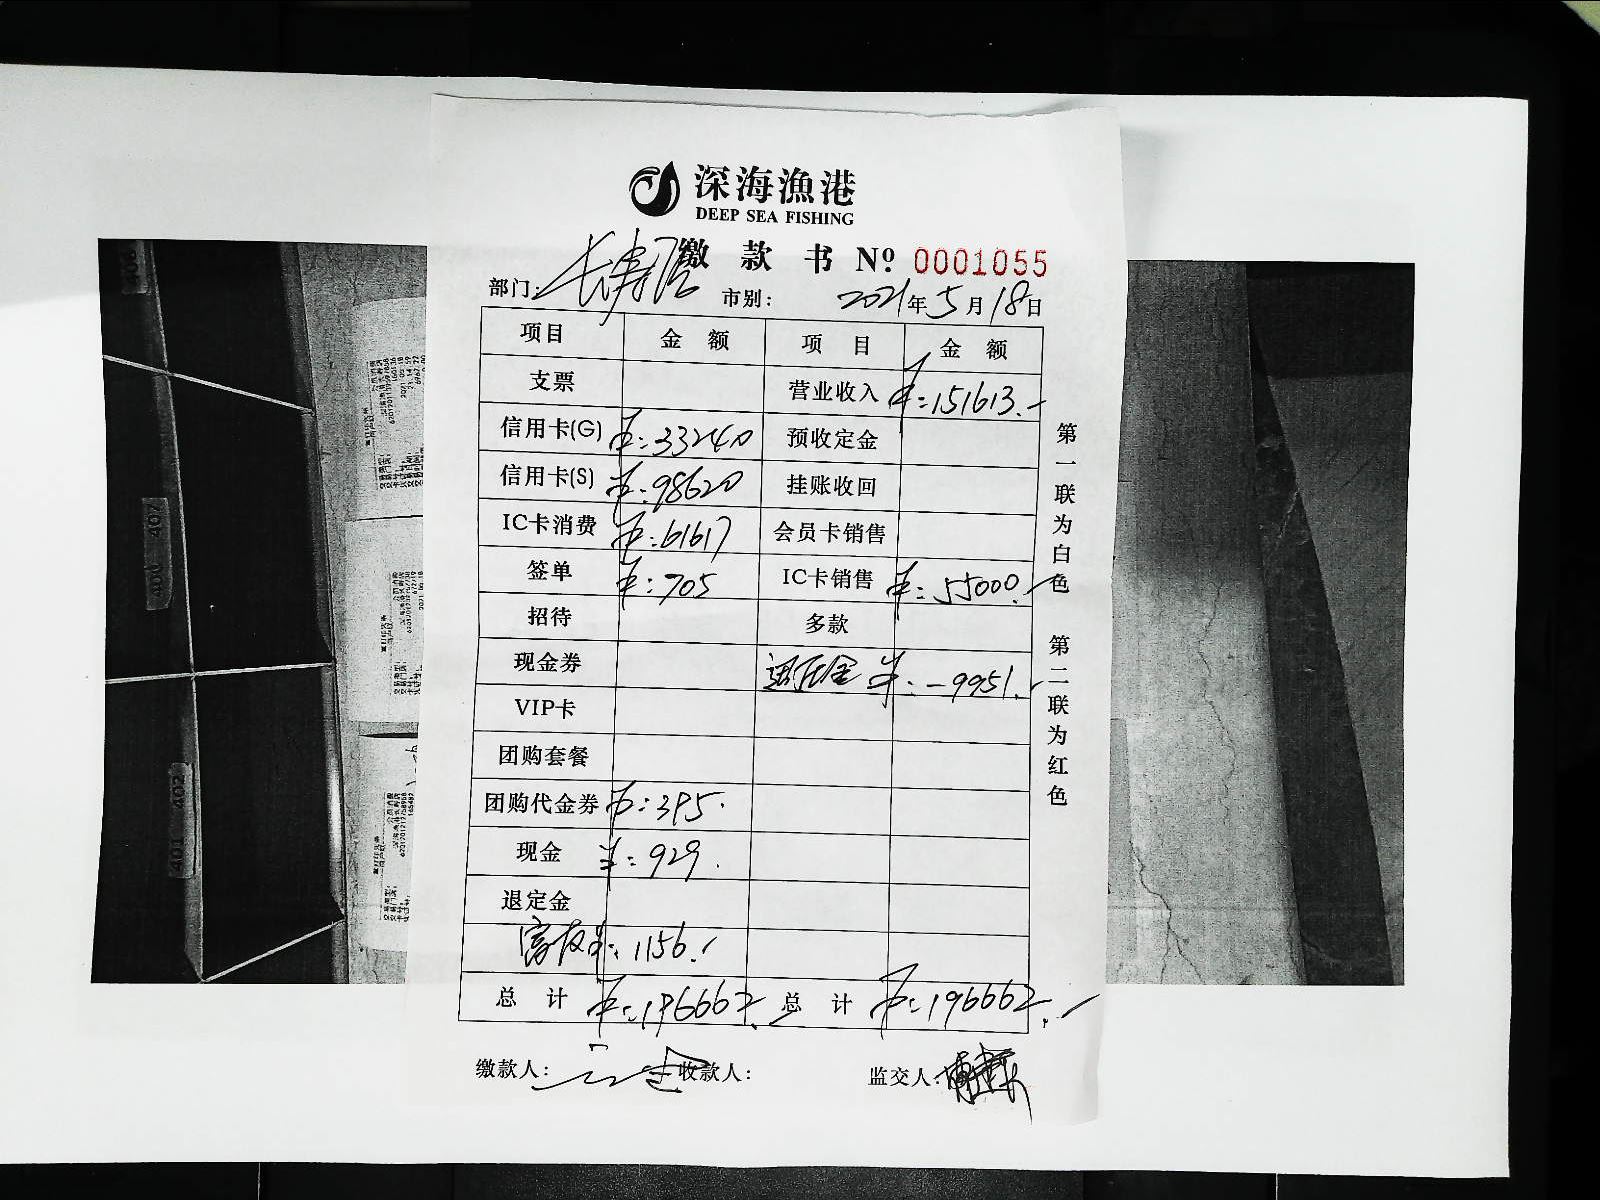 深海漁港
DEEP SEA FISHING
缴款书 Nº 0001055
部门: 长寿店 市别: 2021年5月18日
项目 金额 项目 金额
支票 营业收入 ¥:151613.-
信用卡(G) ¥:33240 预收定金
信用卡(S) ¥:98620 挂账收回
IC卡消费 ¥:61617 会员卡销售
签单 ¥:705 IC卡销售 ¥:55000.-
招待 多款
现金券 退定金 ¥:-9951.-
VIP卡
团购套餐
团购代金券 ¥:395.
现金 ¥:929.
退定金
富友 ¥:1156.-
总计 ¥:196662.- 总计 ¥:196662.-
缴款人: 收款人: 监交人:
第一联为白色
第二联为红色
408
407
406
402
401